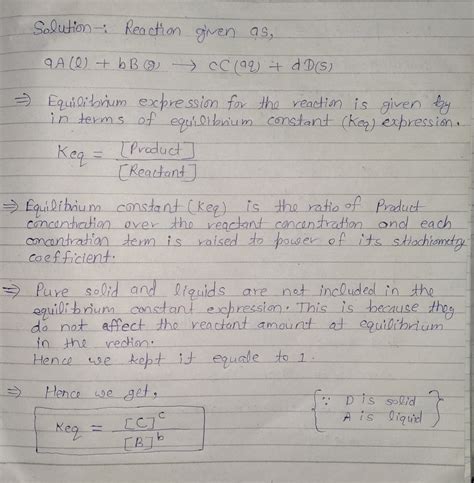 Solution-: Reaction given as,
aA(l) + bB(g) → cC(aq) + dD(s)
⇒ Equilibrium expression for the reaction is given by
in terms of equilibrium constant (Keq) expression.
Keq = [Product]
[Reactant]
⇒ Equilibrium constant (Keq) is the ratio of Product
concentration over the reactant concentration and each
concentration term is raised to power of its stiochiometry
coefficient.
⇒ Pure solid and liquids are not included in the
equilibrium constant expression. This is because they
do not affect the reactant amount at equilibrium
in the rection.
Hence we kept it equale to 1.
⇒ Hence we get,
Keq = [C]^c
[B]^b
{∵ D is solid
A is liquid}